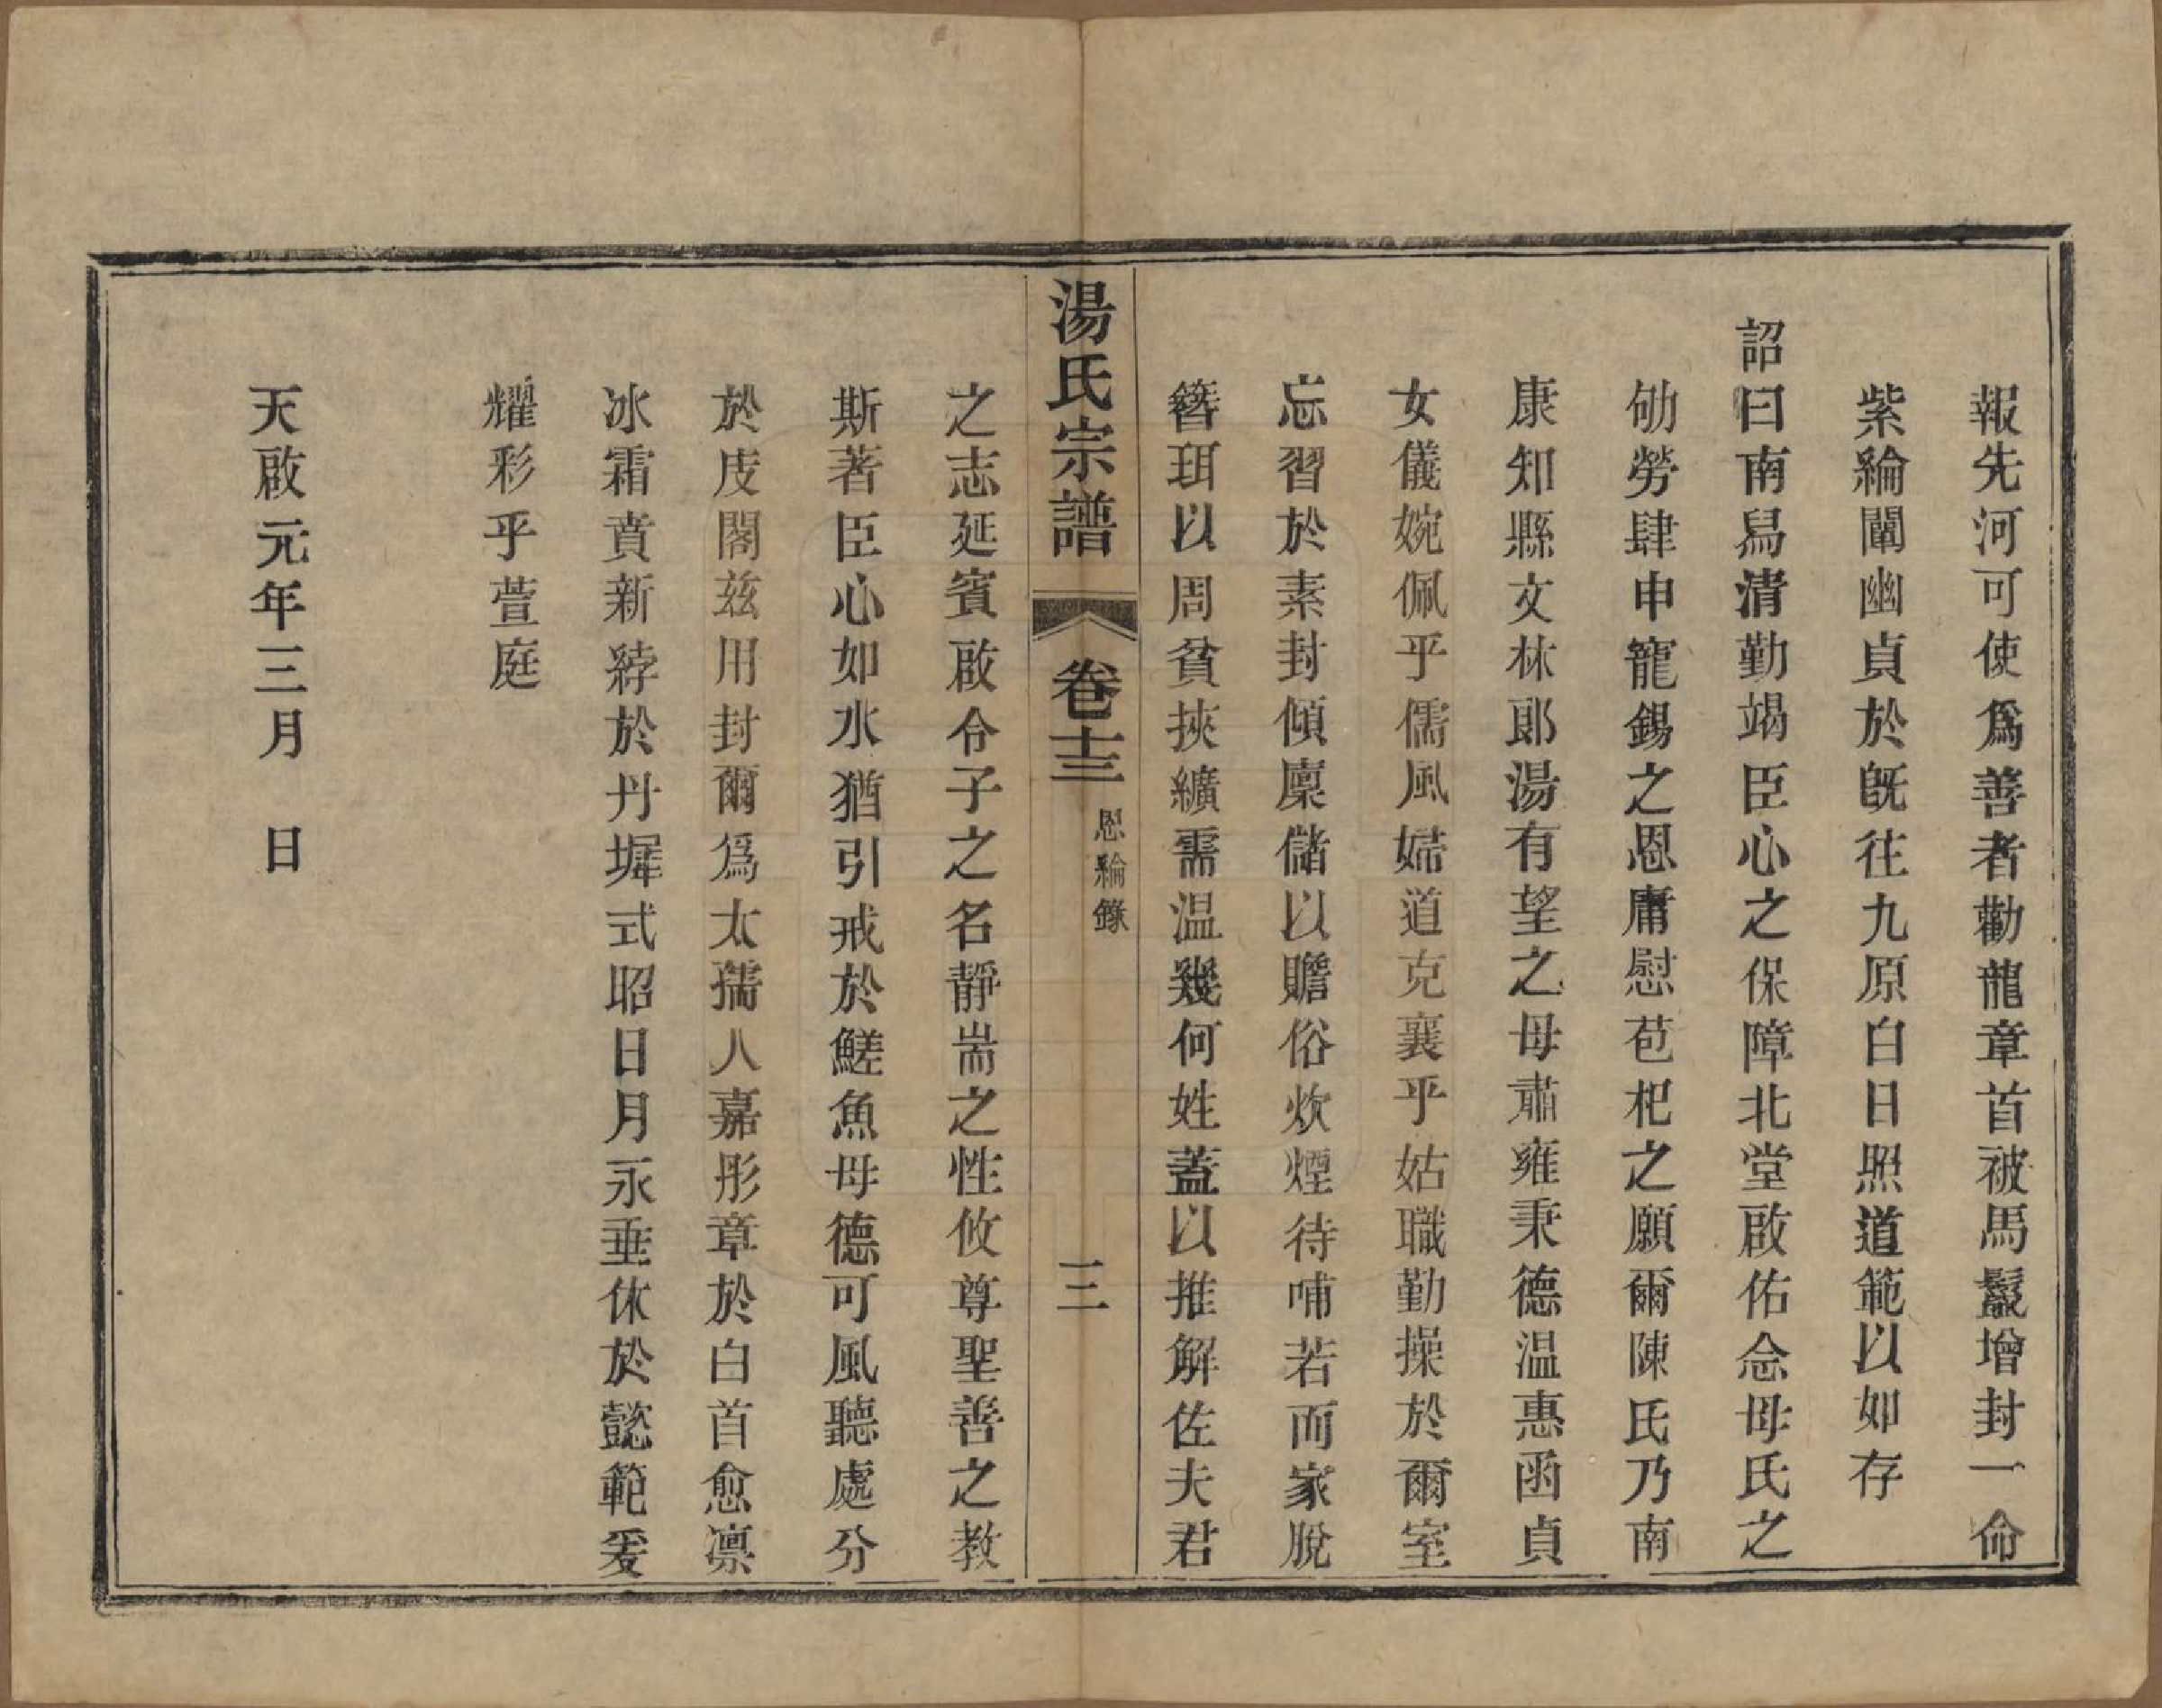 報先河可使爲善者勸龍章首被馬鬛增封一命
紫綸闡幽貞於旣往九原白日照道範以如存
詔曰南舄清勤竭臣心之保障北堂啟佑念母氏之
劬勞肆申寵錫之恩庸慰苞杞之願爾陳氏乃南
康知縣文林郎湯有望之母肅雍秉德温惠函貞
女儀婉佩乎儒風婦道克襄乎姑職勤操於爾室
忘習於素封傾廩儲以贍俗炊煙待哺若而家脫
簪珥以周貧挾纊需温幾何姓蓋以推解佐夫君
湯氏宗譜 卷十三 恩綸錄 三
之志延賓啟令子之名靜耑之性攸尊聖善之教
斯著臣心如水猶引戒於鮺魚母德可風聽處分
於庋閣兹用封爾爲太孺人嘉彤章於白首愈凛
冰霜賁新綍於丹墀式昭日月永垂休於懿範爰
耀彩乎萱庭
天啟元年三月 日